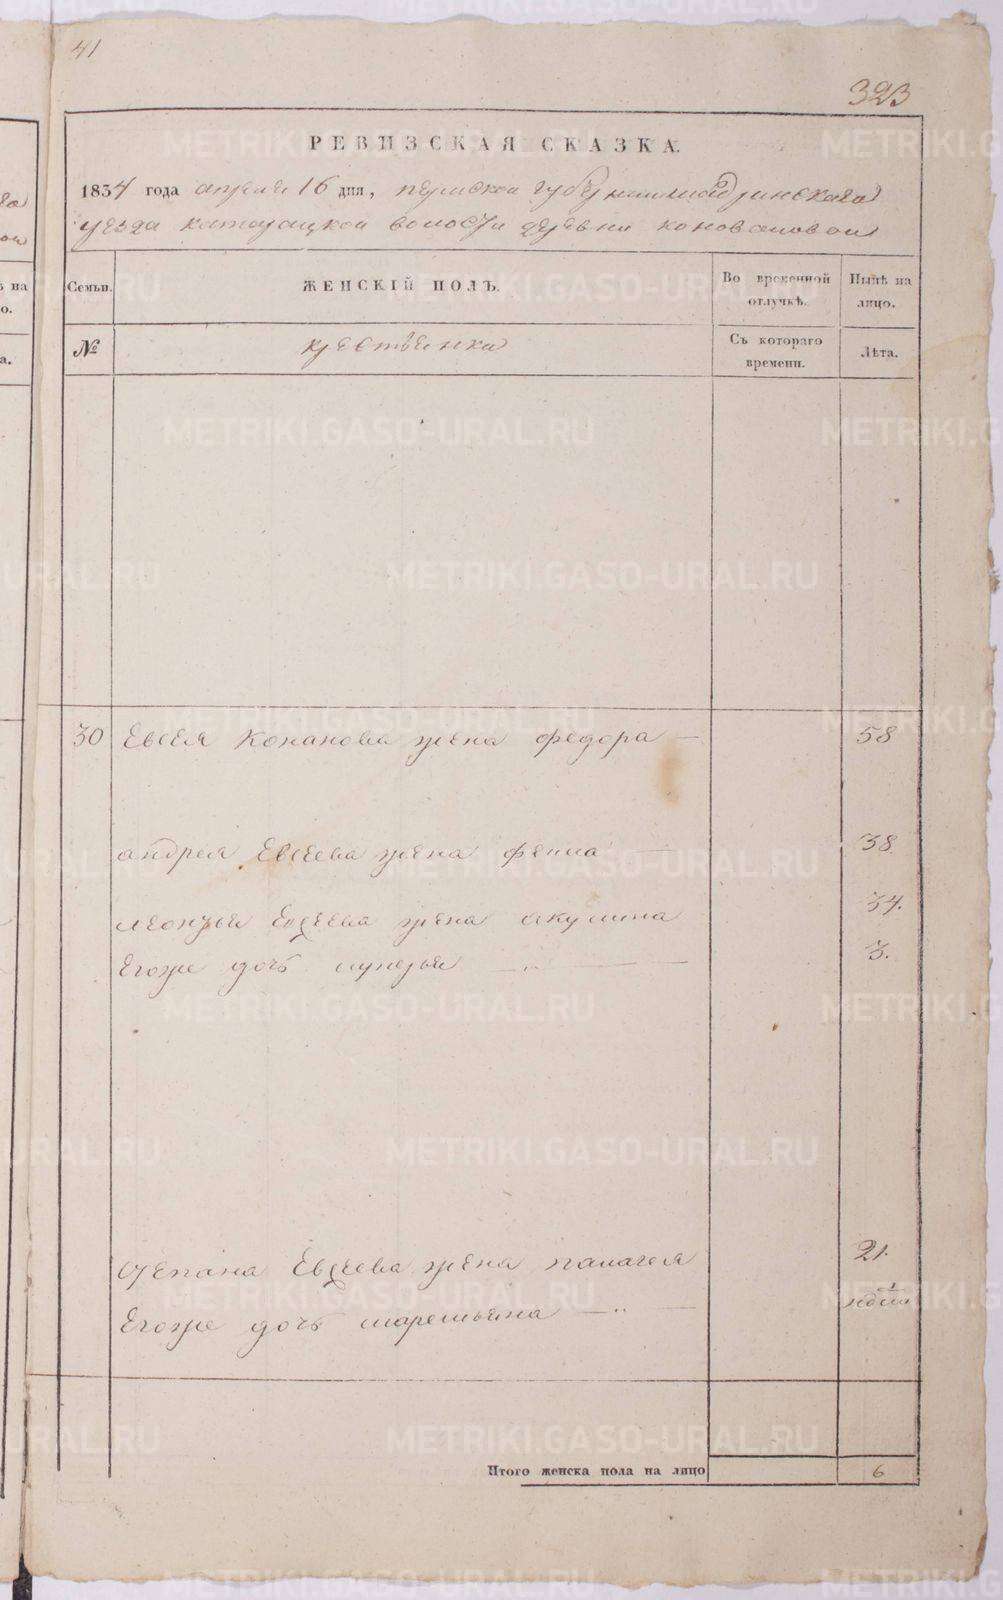 41
323
РЕВИЗСКАЯ СКАЗКА.
1834 года апреля 16 дня, пермской губернии шадринскаго
уезда катайской волости деревни коноваловой
Семьи. ЖЕНСКІЙ ПОЛЪ. Во временной отлучкѣ. Нынѣ на лицо.
№ Съ котораго времени. Лѣта.
30 Евсея Конанова жена федора — 58
андрея Евсеева жена фекла — 38.
леонтья Евсеева жена акулина 34.
Егоже дочь лукерья — „ — — 3.
степана Евсеева жена палагея 21.
Егоже дочь маремьяна — „ — 1
Итого женска пола на лицо 6
METRIKI.GASO-URAL.RU